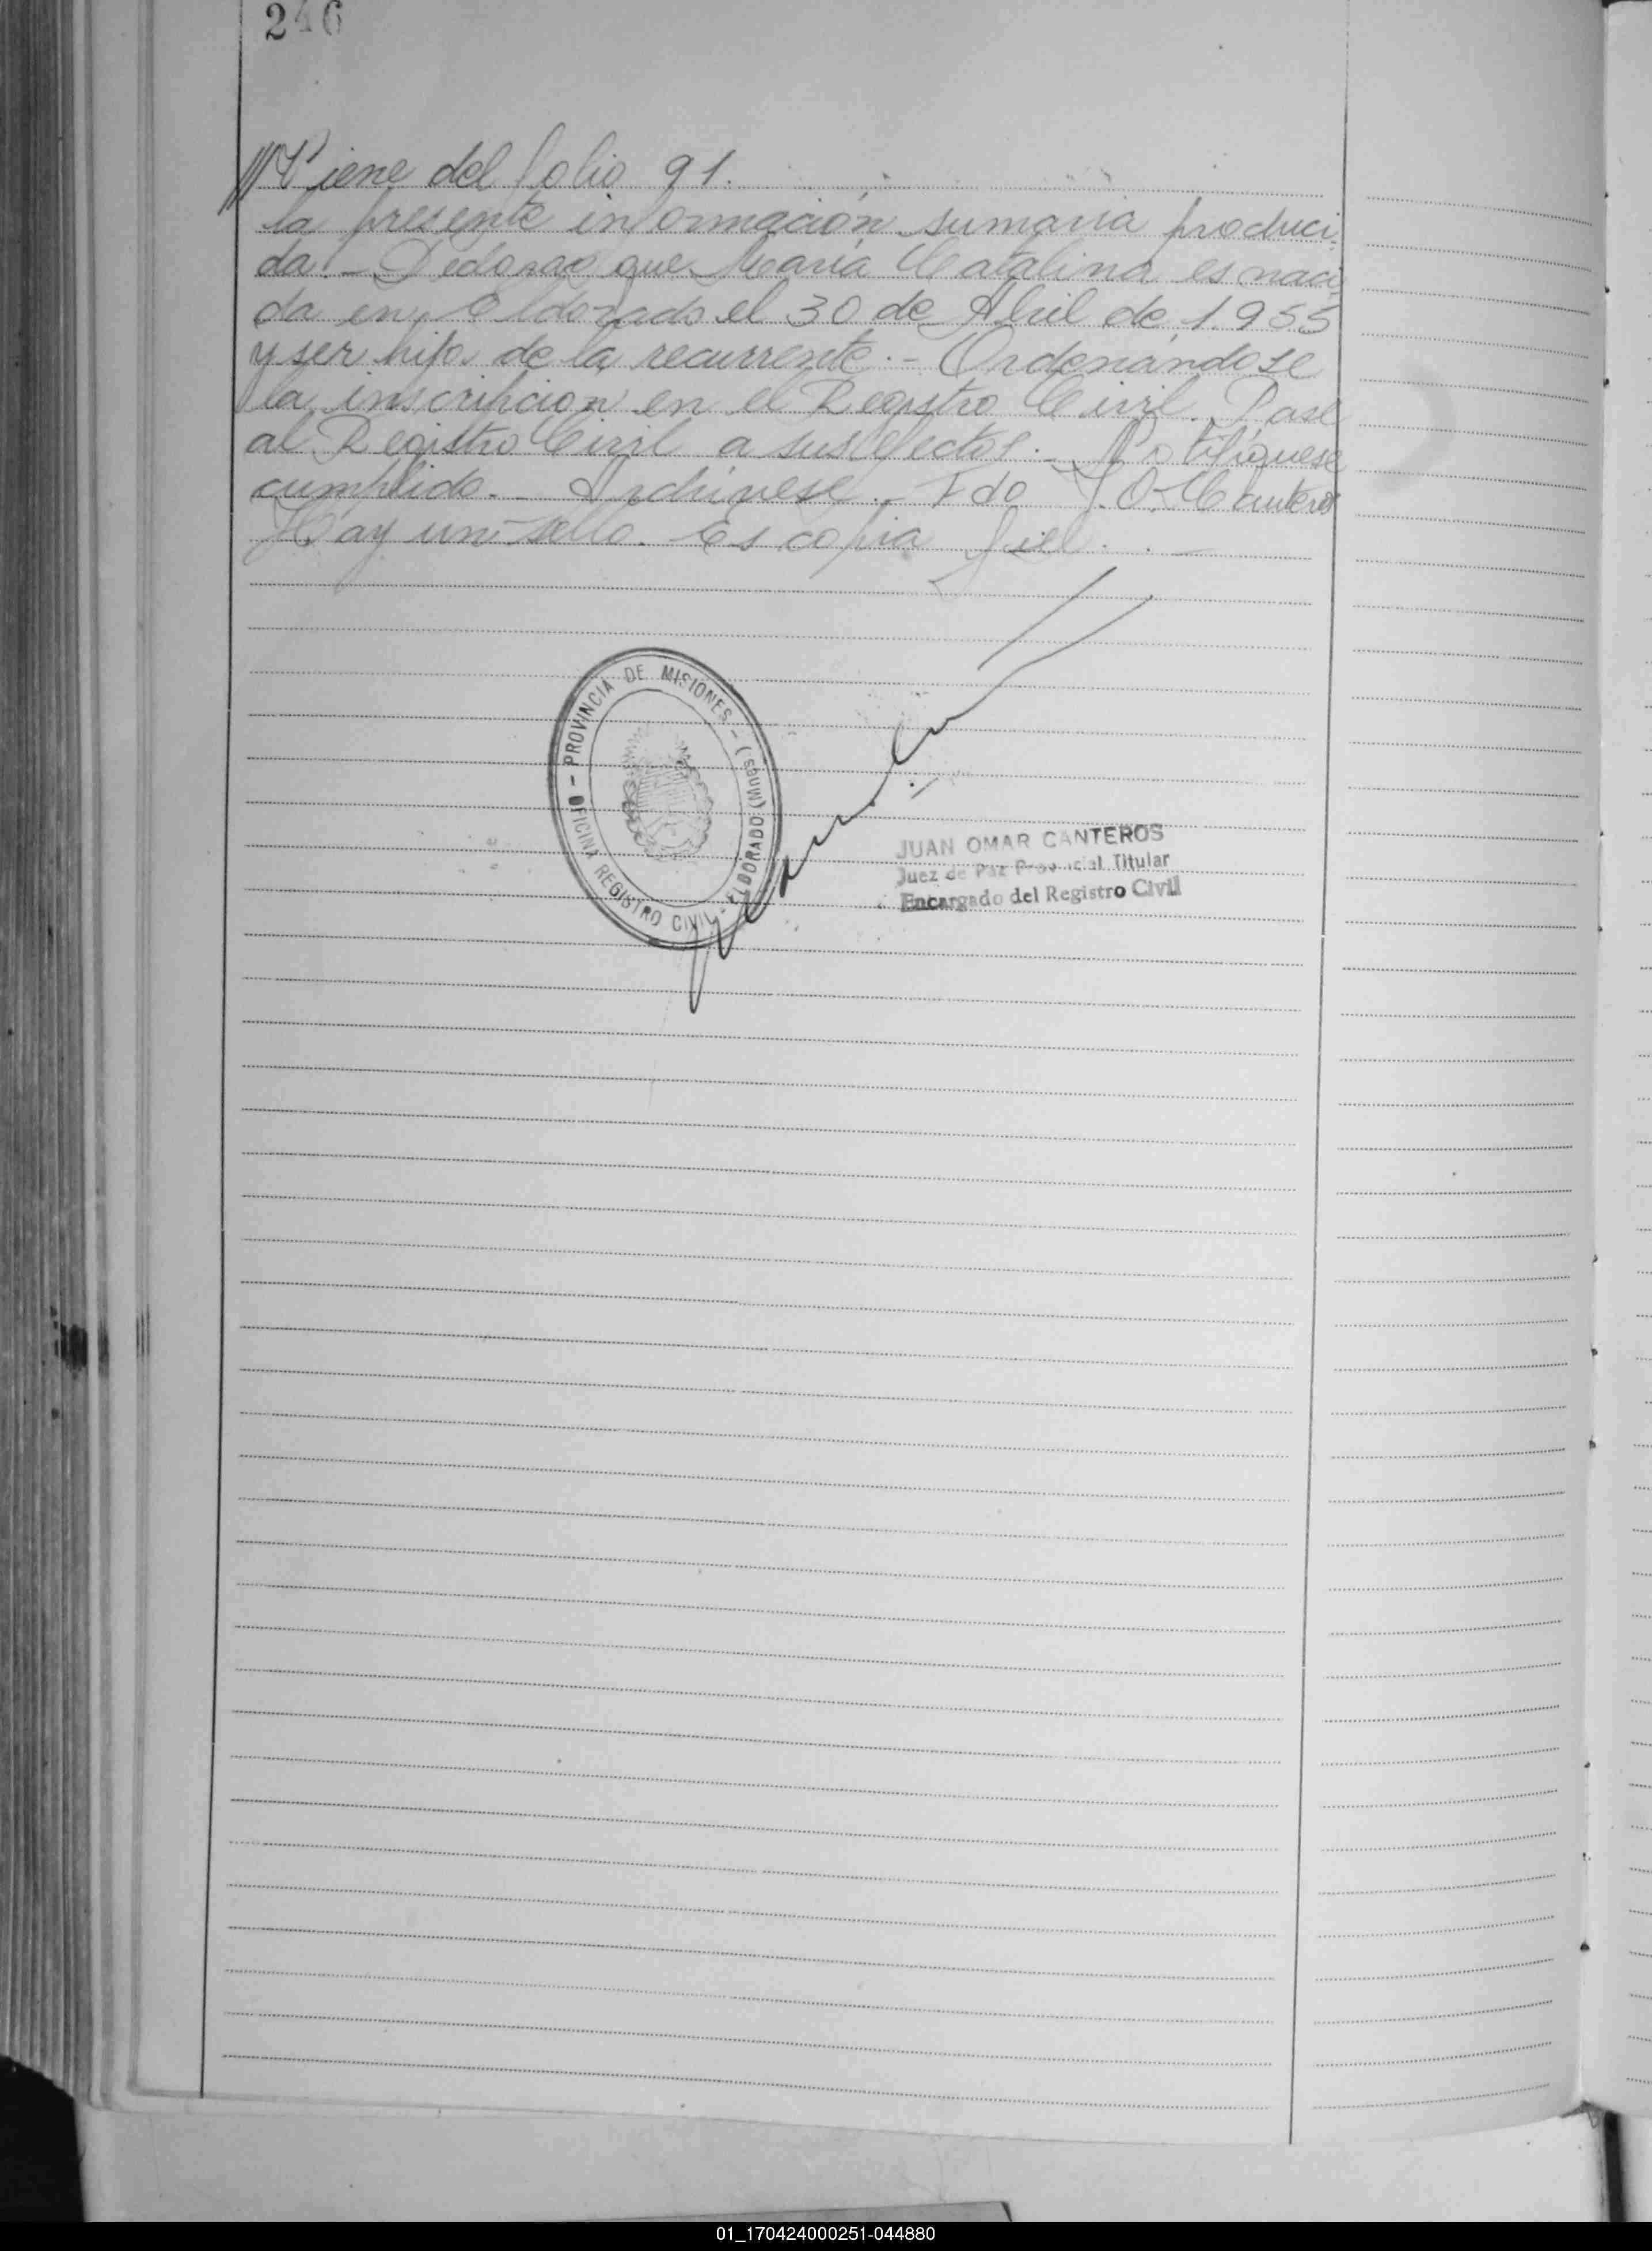 246
///Viene del folio 91.
la presente información sumaria produci-
da.- Declarar que María Catalina es naci-
da en Eldorado el 30 de Abril de 1.955
y ser hija de la recurrente.- Ordenándose
la inscripcion en el Registro Civil. Pase
al Registro Civil a sus efectos.- Notifíquese
cumplido.- Archivese.- Fdo J.O. Canteros
Hay un sello. Es copia fiel. . -
OFICINA REGISTRO CIVIL - ELDORADO (Mnes) - PROVINCIA DE MISIONES -
JUAN OMAR CANTEROS
Juez de Paz Provincial Titular
Encargado del Registro Civil
01_170424000251-044880